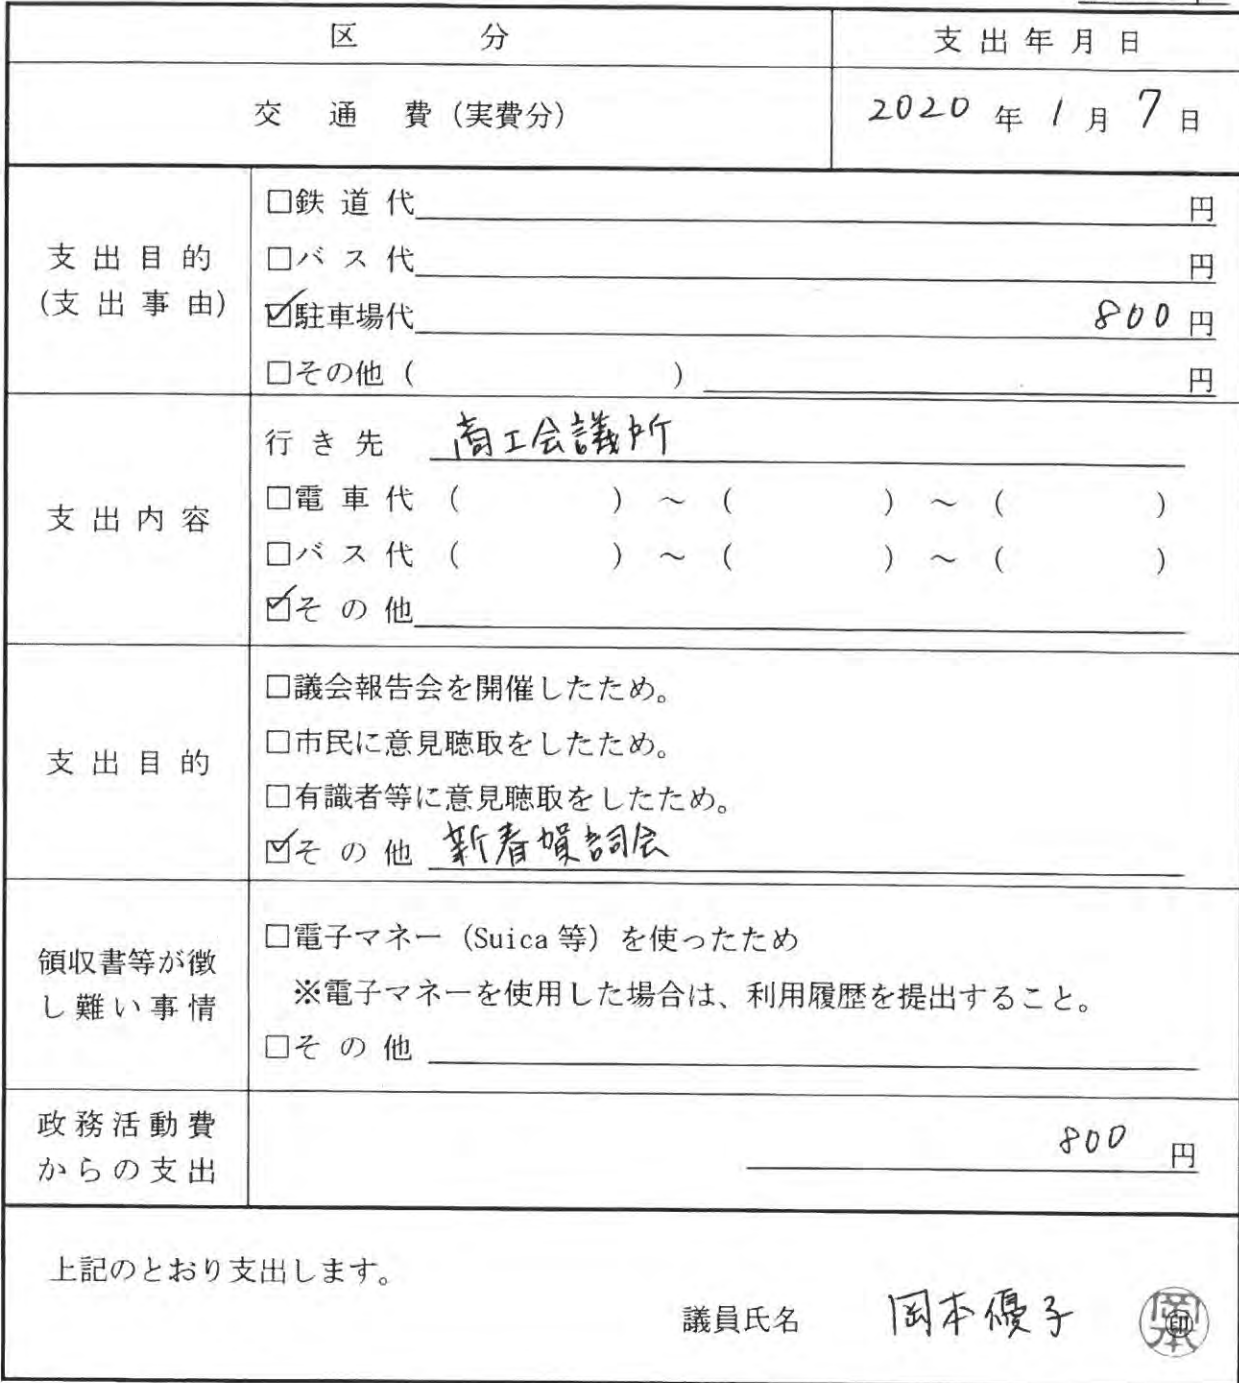 区 分 支出年月日
交 通 費（実費分） 2020 年 1 月 7 日
支出目的
(支出事由)
□鉄道代 円
□バス代 円
☑駐車場代 800 円
□その他（ ） 円
支出内容
行き先 商工会議所
□電車代（ ）～（ ）～（ ）
□バス代（ ）～（ ）～（ ）
☑その他
支出目的
□議会報告会を開催したため。
□市民に意見聴取をしたため。
□有識者等に意見聴取をしたため。
☑その他 新春賀詞会
領収書等が徴
し難い事情
□電子マネー（Suica 等）を使ったため
※電子マネーを使用した場合は、利用履歴を提出すること。
□その他
政務活動費
からの支出
800 円
上記のとおり支出します。
議員氏名 岡本優子 ㊞